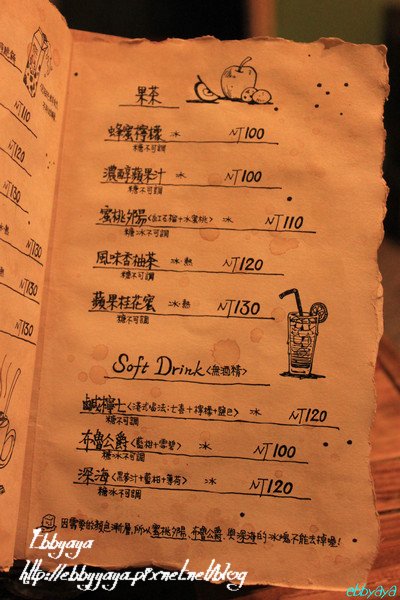 果茶
蜂蜜檸檬 冰 NT100
糖不可調
濃醇蘋果汁 冰 NT100
糖不可調
蜜桃邻陽<紅石榴+水蜜桃> 冰 NT110
糖冰不可調
風味香柚茶 冰.熱 NT120
糖不可調
蘋果桂花蜜 冰.熱 NT130
糖不可調
Soft Drink<無酒精>
鹹檸七<港式喝法:七喜+檸檬+鹽巴> 冰 NT120
糖不可調
布魯公爵<藍柑+雪碧> 冰 NT100
糖冰不可調
深海<黑麥汁+藍柑+薄荷> 冰 NT120
糖冰不可調
因需要的顏色漸層,所以蜜桃邻陽、布魯公爵、與深海的冰塊不能去掉喔!
NT110
NT120
NT130
NT130
NT130
NT130
Ibbyaya
http://ebbyyaya.pixnet.net/blog
ebbyaya